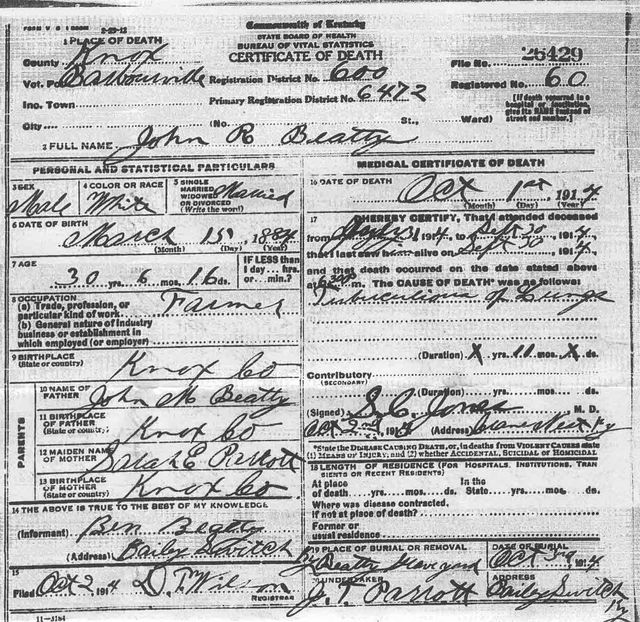 FORM V. S. 1
2-23-12
Commonwealth of Kentucky
STATE BOARD OF HEALTH
BUREAU OF VITAL STATISTICS
CERTIFICATE OF DEATH
1 PLACE OF DEATH
County Knox
Vot. Barbourville
Registration District No. 600
File No. 26429
Registered No. 60
Inc. Town
Primary Registration District No. 6472
[If death occurred in a hospital or institution, give its NAME instead of street and number.]
City (No. St., Ward)
2 FULL NAME John R Beatty
PERSONAL AND STATISTICAL PARTICULARS
3 SEX Male
4 COLOR OR RACE White
5 SINGLE MARRIED WIDOWED OR DIVORCED (Write the word) Married
6 DATE OF BIRTH
March 15, 1884
(Month) (Day) (Year)
7 AGE
30 yrs 6 mos 16 ds.
IF LESS than 1 day... hrs. or... min.?
8 OCCUPATION Farmer
(a) Trade, profession, or particular kind of work
(b) General nature of industry business or establishment in which employed (or employer)
9 BIRTHPLACE (State or country) Knox Co
PARENTS
10 NAME OF FATHER John M Beatty
11 BIRTHPLACE OF FATHER (State or country) Knox Co
12 MAIDEN NAME OF MOTHER Sarah E Parrott
13 BIRTHPLACE OF MOTHER (State or country) Knox Co
14 THE ABOVE IS TRUE TO THE BEST OF MY KNOWLEDGE
(Informant) Ben Beatty
(Address) Baily Switch Ky
15
Filed Oct 2, 1914 D. T. Wilson
REGISTRAR
11-3184
MEDICAL CERTIFICATE OF DEATH
16 DATE OF DEATH
Oct 1st 1914
(Month) (Day) (Year)
17 I HEREBY CERTIFY, That I attended deceased
from 1914 to Sept 30, 1914
that I last saw him alive on Sept 30, 1914,
and that death occurred on the date stated above
at m. The CAUSE OF DEATH* was as follows:
Tuberculious of Lungs
(Duration) X yrs. 11 mos. X ds.
Contributory (SECONDARY)
(Duration) yrs. mos. ds.
(Signed) S. C. Jones M. D.
Oct 2nd 1914 (Address) Ky
*State the DISEASE CAUSING DEATH, or, in deaths from VIOLENT CAUSES state (1) MEANS OF INJURY; and (2) whether ACCIDENTAL, SUICIDAL OR HOMICIDAL
18 LENGTH OF RESIDENCE (FOR HOSPITALS, INSTITUTIONS, TRANSIENTS OR RECENT RESIDENTS)
At place of death yrs. mos. ds. In the State yrs. mos. ds.
Where was disease contracted, If not at place of death?
Former or usual residence
19 PLACE OF BURIAL OR REMOVAL Beatty Graveyard
DATE OF BURIAL Oct 3rd 1914
UNDERTAKER J. T. Parrott
ADDRESS Bailey Switch Ky